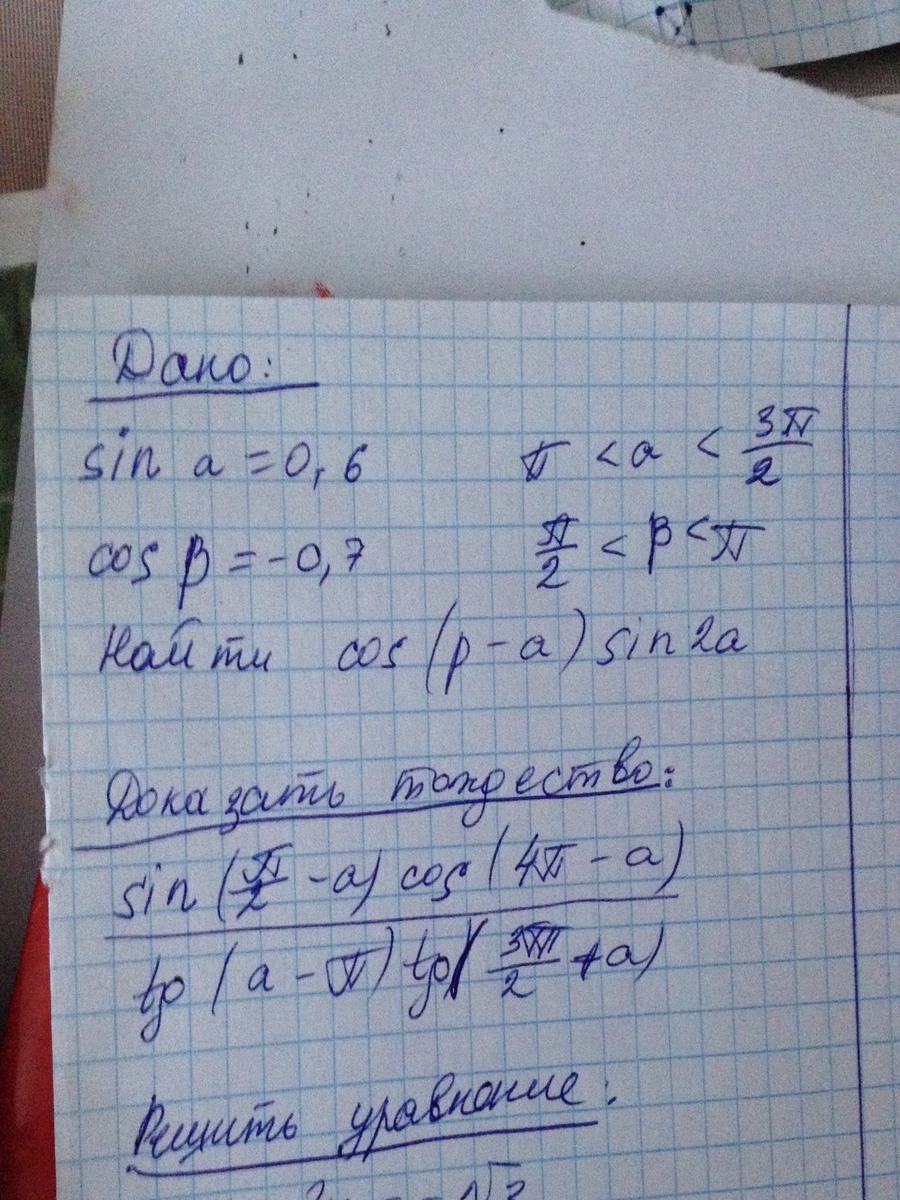 Дано:
sin a = 0,6 π < a < 3π/2
cos β = -0,7 π/2 < β < π
Найти cos(β - a) sin 2a
Доказать тождество:
sin(π/2 - a) cos(4π - a)
tg(a - π) tg(3π/2 + a)
Решить уравнение: